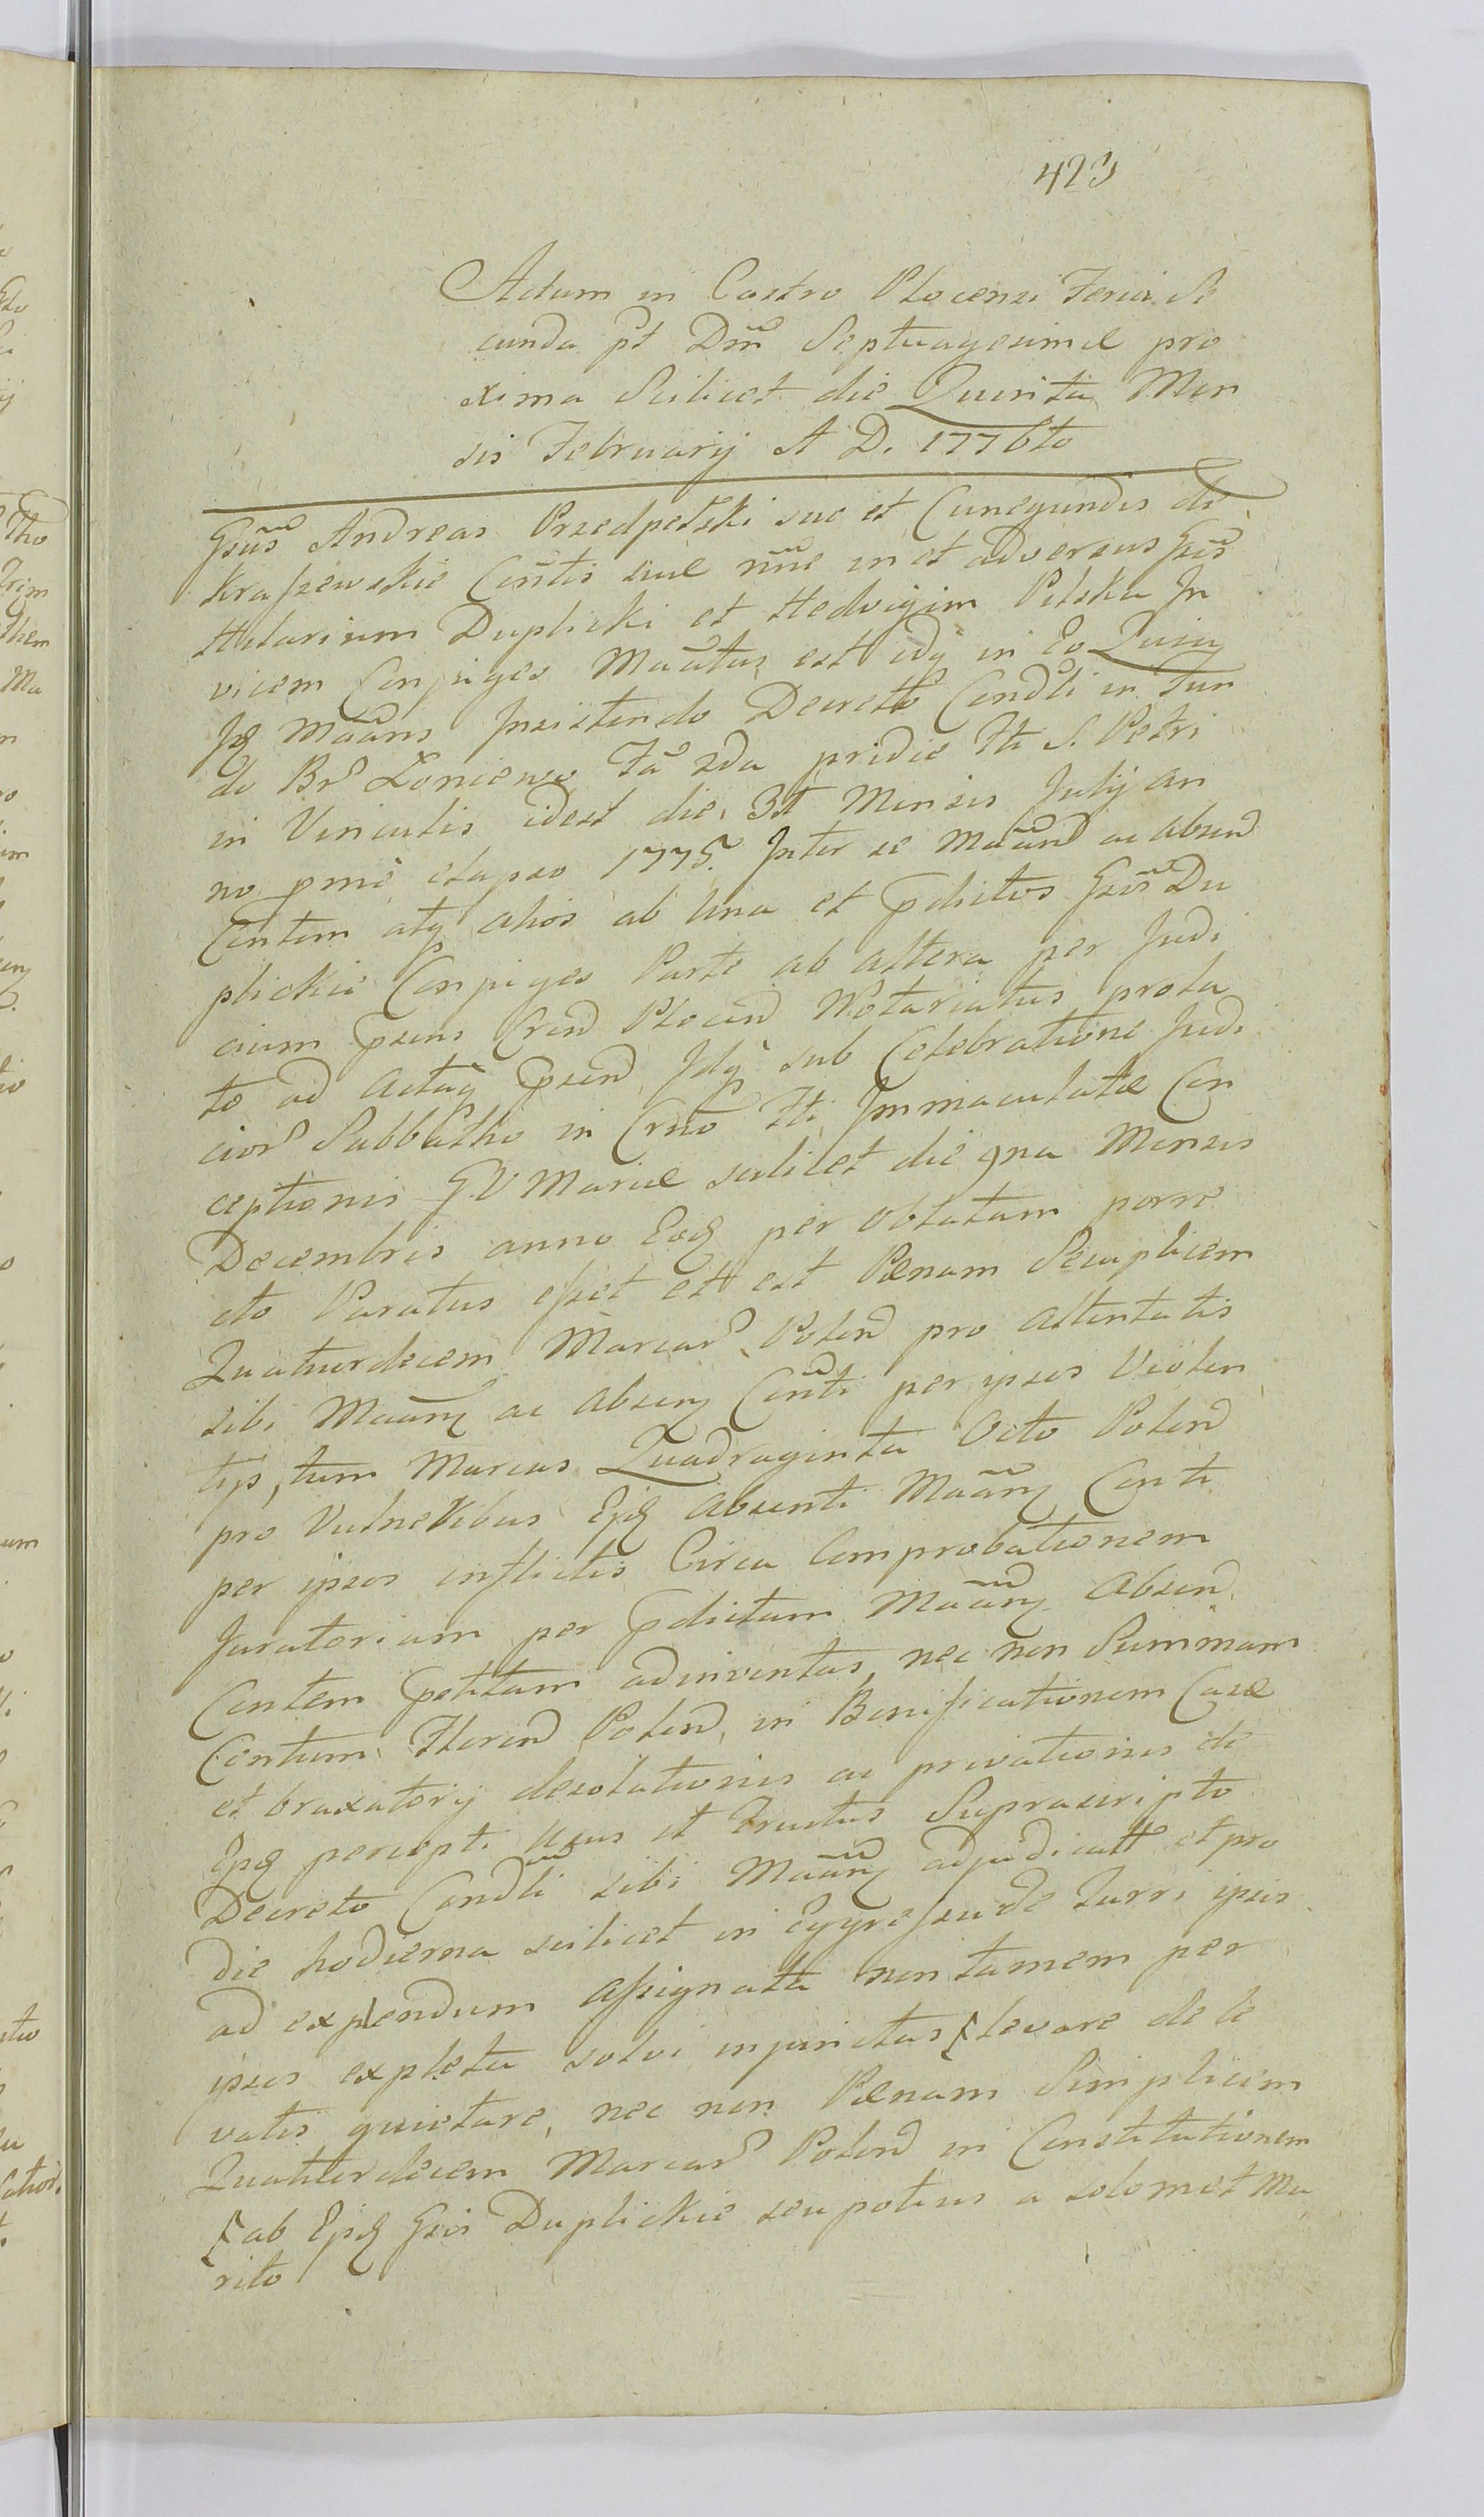 423
Actum in Castro Plocensi Feria Se
cunda pt Dm̃ Septuagesimæ pro
xima Scilicet die Quinta Men
sis Februarij A D. 1776to
Gsus Andreas Przedpełski suo et Cunegundis de
Kraszewskie Cõntis suæ nñe in et adversus Gsos
Hilarium Duplicki et Hedvigim Pilska In
vicem Conjuges Maãtus est idq in Eo Quia
Jq Maãns Insistendo Decreto Condli in fun
do Br Łoniewo Fã 2da pridie fti S. Petri
in Vinculis idest die 31 Mensis Julij an
no pme elapso 1775. Inter se Maãnd ac absend
Contem atq alios ab una et pdictos Gsos Du
plickie Conjuges Parte ab altera per Judi
cium psens Crend Plocend Notariatus prola
to ad Actaq psend Idq sub Celebratione Judi
cior Sabbatho in Crno fti Immaculatæ Con
ceptionis G. V Mariæ scilicet die 9na Mensis
Decembris anno Eoq per oblatam porre
cto Paratus esset et est Pænam Secuplicem
Quatuordecem Marcar Polend pro attentatis
sibi Maãnq ac absenq Cõnti per ipsos Violen
tijs, tum Marcas Quadraginta Octo Polend
pro Vulneribus Ejq absenti Maãnq Conti
per ipsos inflictis Circa Comprobationem
Juratoriam per pdictam Maãnq absend
Contem petitam adinventas, nec non Summam
Centum Florend Polend, in Bonificationem Casæ
et braxatorij desolationis ac privationis de
Ejq percepti usus et Fructus Suprascripto
Decreto Condli sibi Maãnq adjudicatt et pro
die hodierna scilicet in Egressu de Turri ipsis
ad explendum assignata non tamem per
ipsos expleta solvi injunctas levare de le
vatis quietare, nec non Pænam Simplicem
Quatuordecem Marcar Polend in Constitutionem
ab Ejq Gsis Duplickie seu potius a solomet Ma
rito